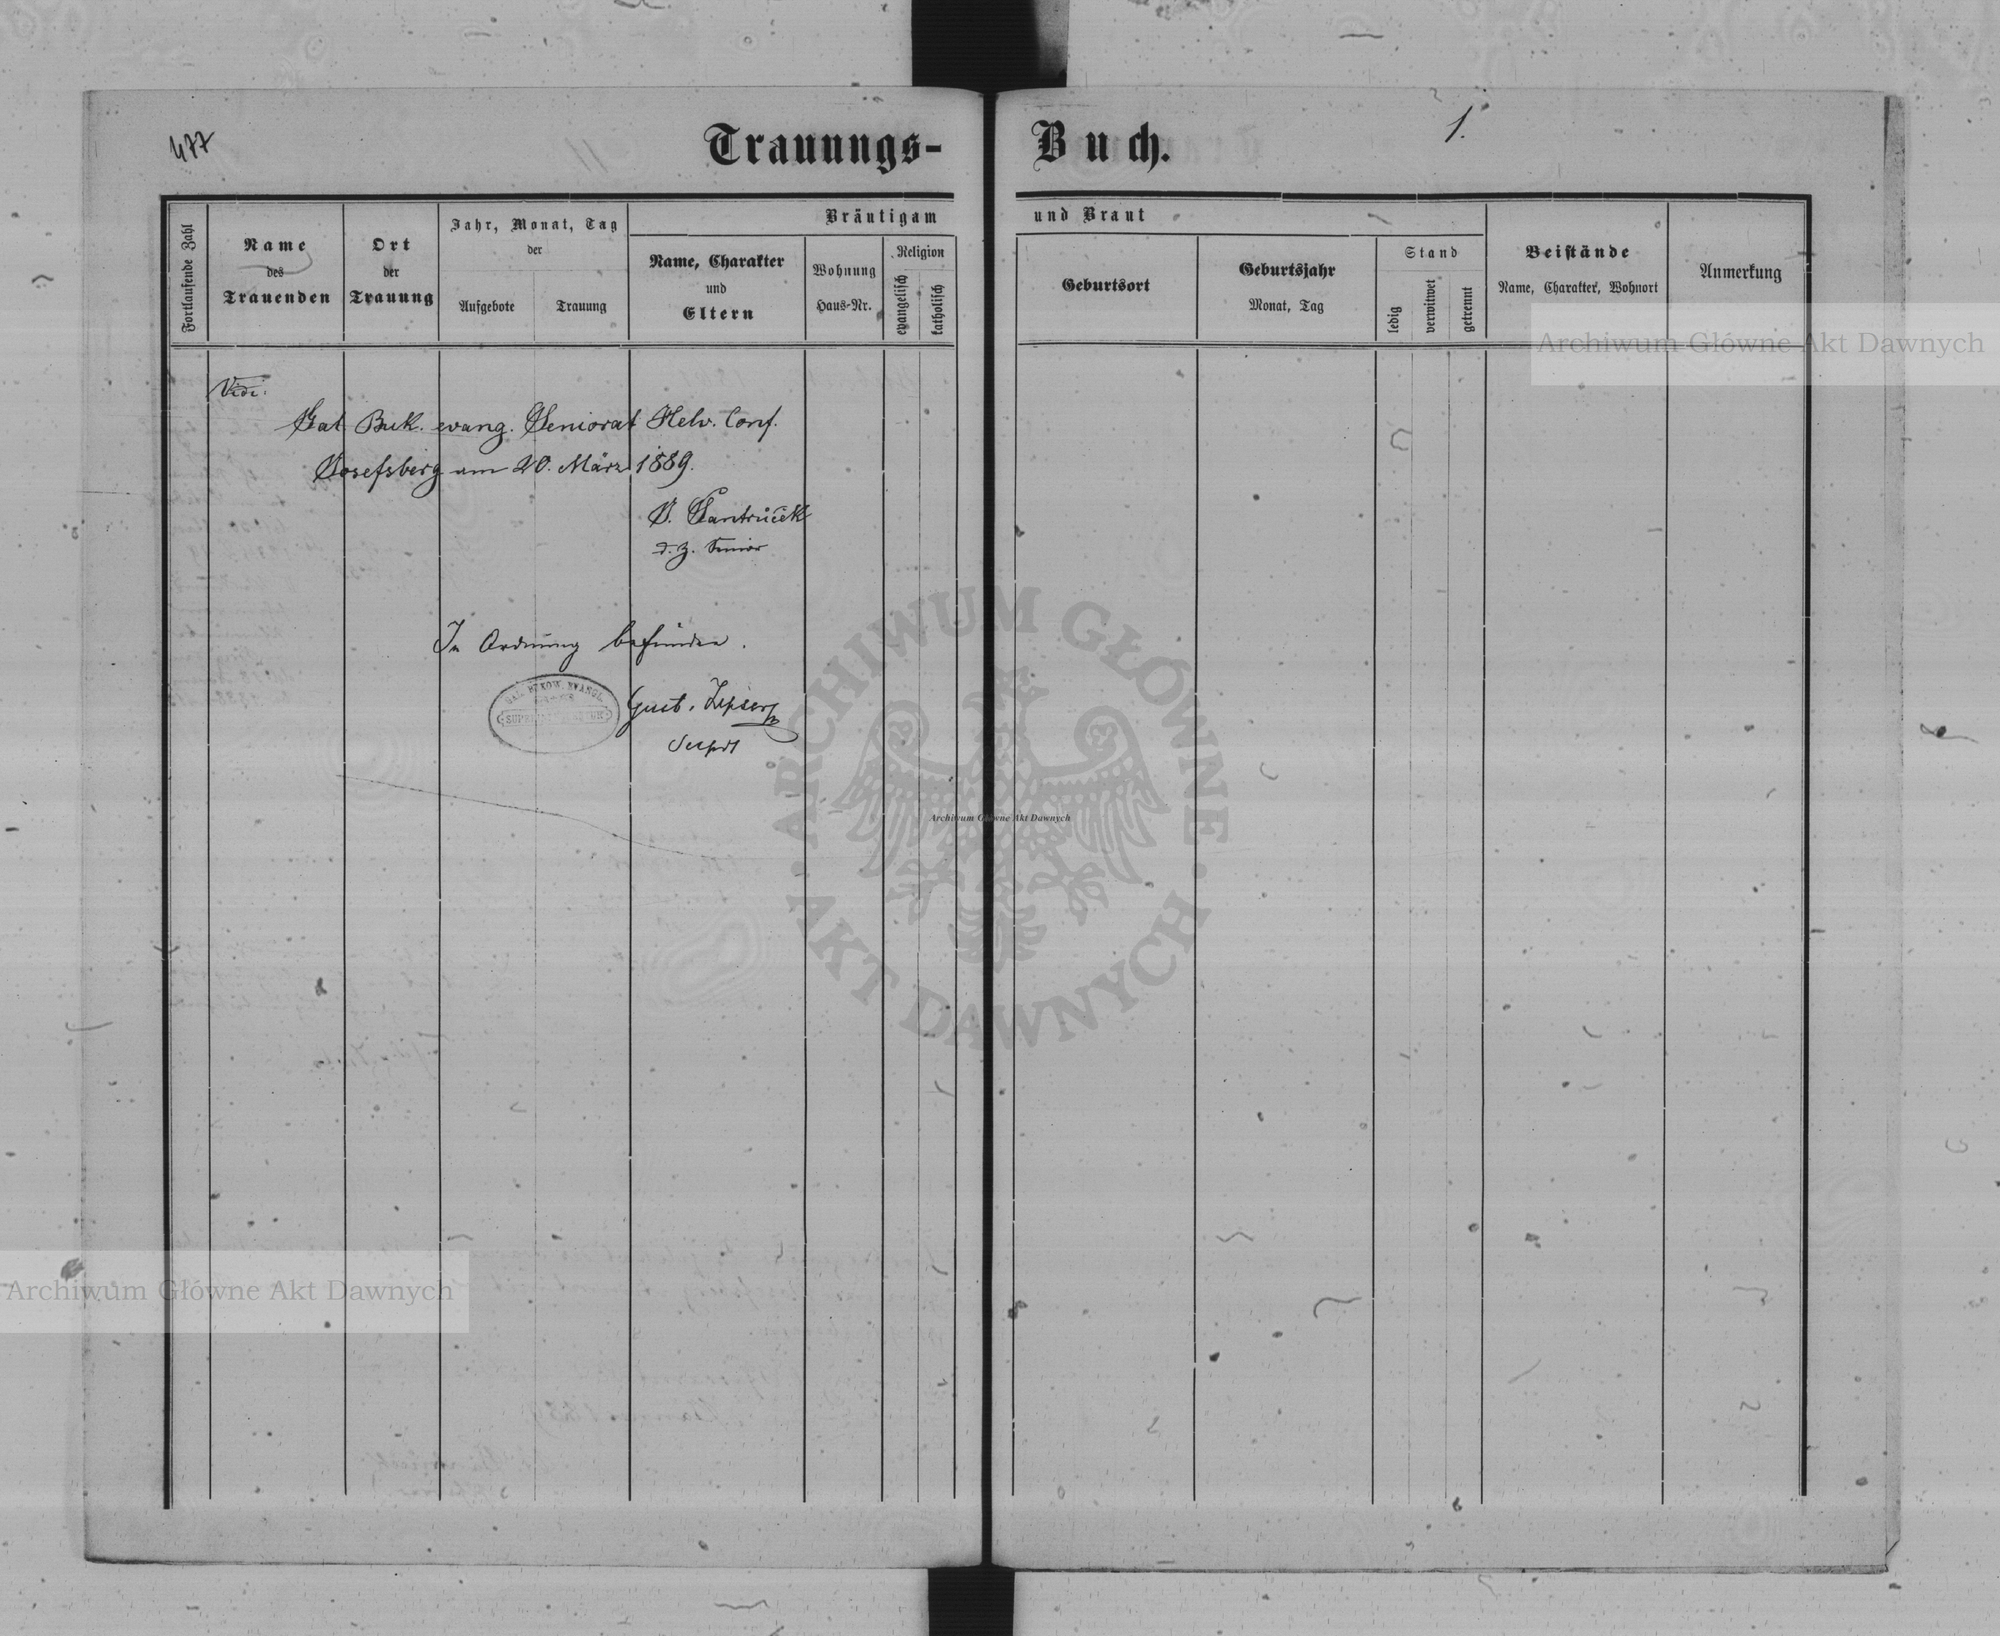 477
Trauungs-Buch.
1.
Fortlaufende Zahl
Name
des
Trauenden
Ort
der
Trauung
Jahr, Monat, Tag
der
Aufgebote
Trauung
Bräutigam und Braut
Name, Charakter
und
Eltern
Wohnung
Haus-Nr.
Religion
evangelisch
katholisch
Geburtsort
Geburtsjahr
Monat, Tag
Stand
ledig
verwitwet
getrennt
Beistände
Name, Charakter, Wohnort
Anmerkung
Vidi:
Gal. Buk. evang. Seniorat Helv. Conf.
Josefsberg am 20. März 1889.
J. Jantrůček
d. z. Senior
In Ordnung befunden.
GAL. BUKOW. EVANGL.
SUPERINTENDENTUR
Archiwum Główne Akt Dawnych
ARCHIWUM GŁÓWNE
AKT DAWNYCH
Archiwum Główne Akt Dawnych
Archiwum Główne Akt Dawnych